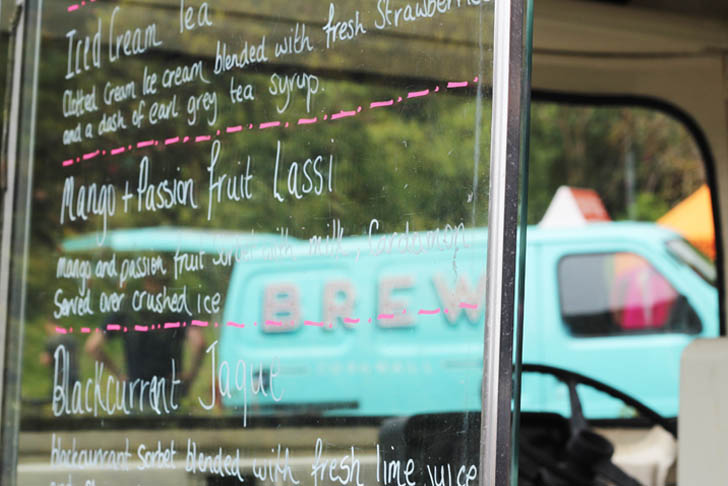 Iced Cream Tea
Clotted Cream Ice cream blended with fresh Strawberries
and a dash of earl grey tea syrup.
Mango + Passion fruit Lassi
mango and passion fruit Sorbet with milk, Cardamon
Served over crushed ice
BREW
CORNWALL
Blackcurrant Jaque
blackcurrant Sorbet blended with fresh lime juice